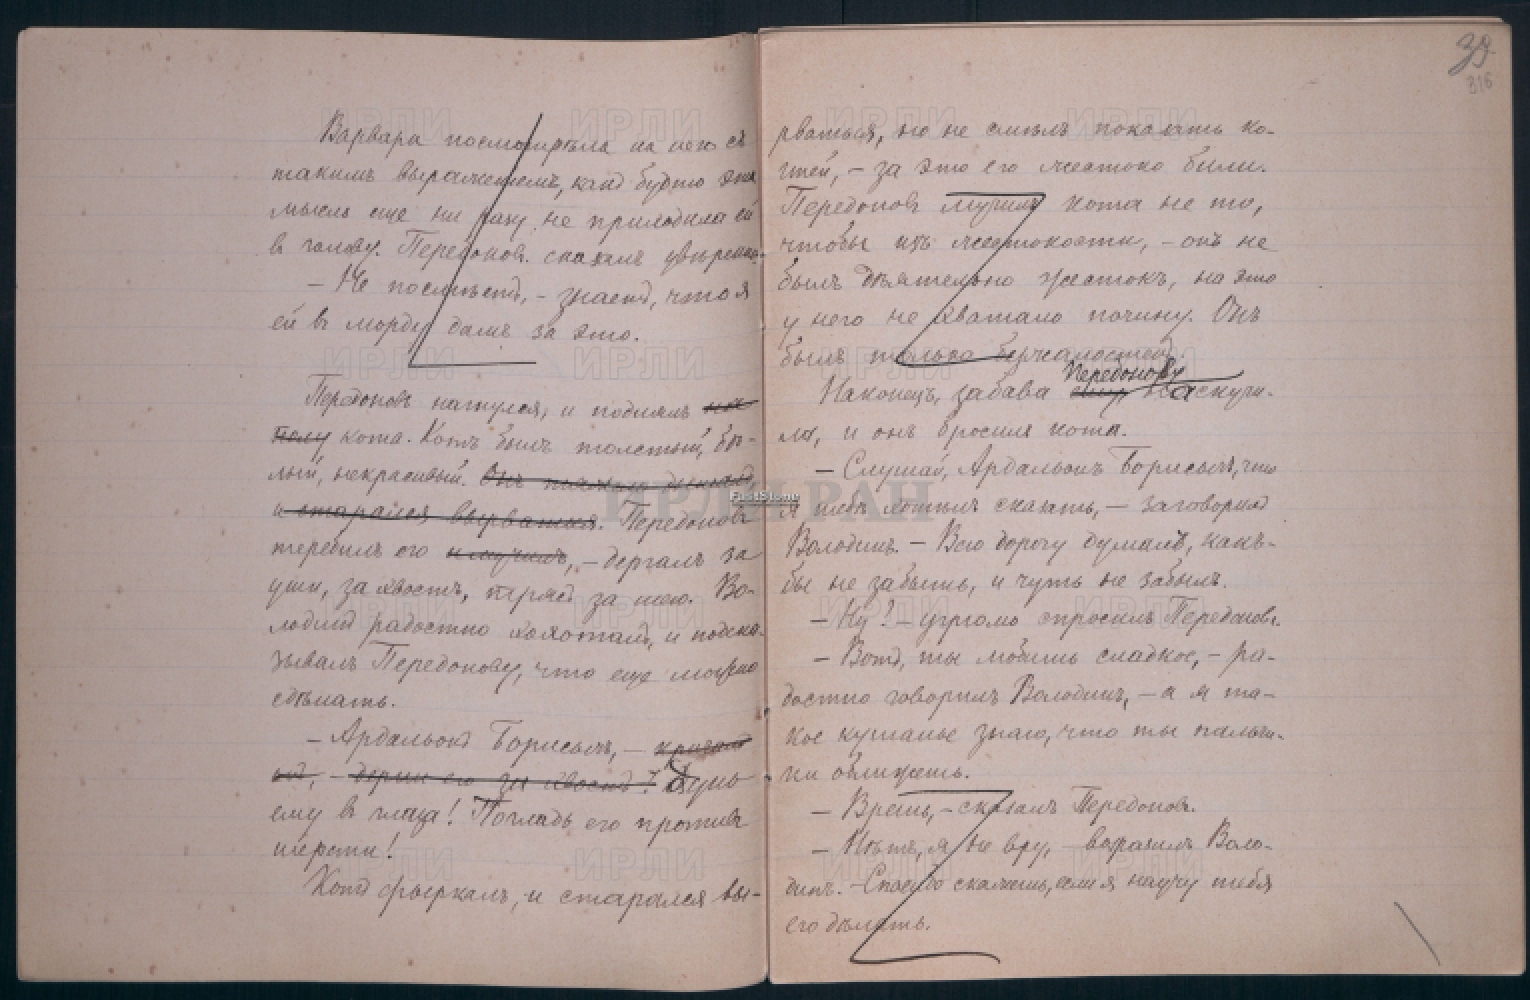 Варвара посмотрѣла на него съ
такимъ выраженіемъ, какъ будто эта
мысль еще ни разу не приходила ей
въ голову. Передоновъ сказалъ увѣренно:
– Не посмѣетъ, – знаетъ, что я
ей въ морду дамъ за это.
Передоновъ нагнулся, и поднялъ на
полу кота. Котъ былъ толстый, бѣ-
лый, некрасивый. Онъ тяжело дышалъ
и старался вырваться. Передоновъ
теребилъ его и мучилъ, – дергалъ за
уши, за хвостъ, трясъ за шею. Во-
лодинъ радостно хохоталъ, и подска-
зывалъ Передонову, что еще можно
сдѣлать.
– Ардальонъ Борисычъ, – кричалъ
онъ, – дерни его за хвостъ! Дунь
ему въ глаза! Погладь его противъ
шерсти!
Котъ фыркалъ, и старался вы-
39
316
рваться, но не смѣлъ показать ко-
гтей, – за это его жестоко били.
Передоновъ мучилъ кота не то,
чтобы изъ жестокости, – онъ не
былъ дѣятельно жестокъ, на это
у него не хватало почину. Онъ
былъ только безжалостенъ.
Передонову
Наконецъ, забава ему наскучи-
ла, и онъ бросилъ кота.
– Слушай, Ардальонъ Борисычъ, что
я тебѣ хотѣлъ сказать, – заговорилъ
Володинъ. – Всю дорогу думалъ, какъ-
бы не забыть, и чуть не забылъ.
– Ну? – угрюмо спросилъ Передоновъ.
– Вотъ, ты любишь сладкое, – ра-
достно говорилъ Володинъ, – а я та-
кое кушанье знаю, что ты пальчи-
ки оближешь.
– Врешь, – сказалъ Передоновъ.
– Нѣтъ, я не вру, – возразилъ Воло-
динъ. – Спасибо скажешь, если я научу тебя
его дѣлать.
ИРЛИ РАН
FastStone
ИРЛИ ИРЛИ ИРЛИ ИРЛИ
ИРЛИ ИРЛИ ИРЛИ ИРЛИ
ИРЛИ ИРЛИ ИРЛИ ИРЛИ
ИРЛИ ИРЛИ ИРЛИ ИРЛИ